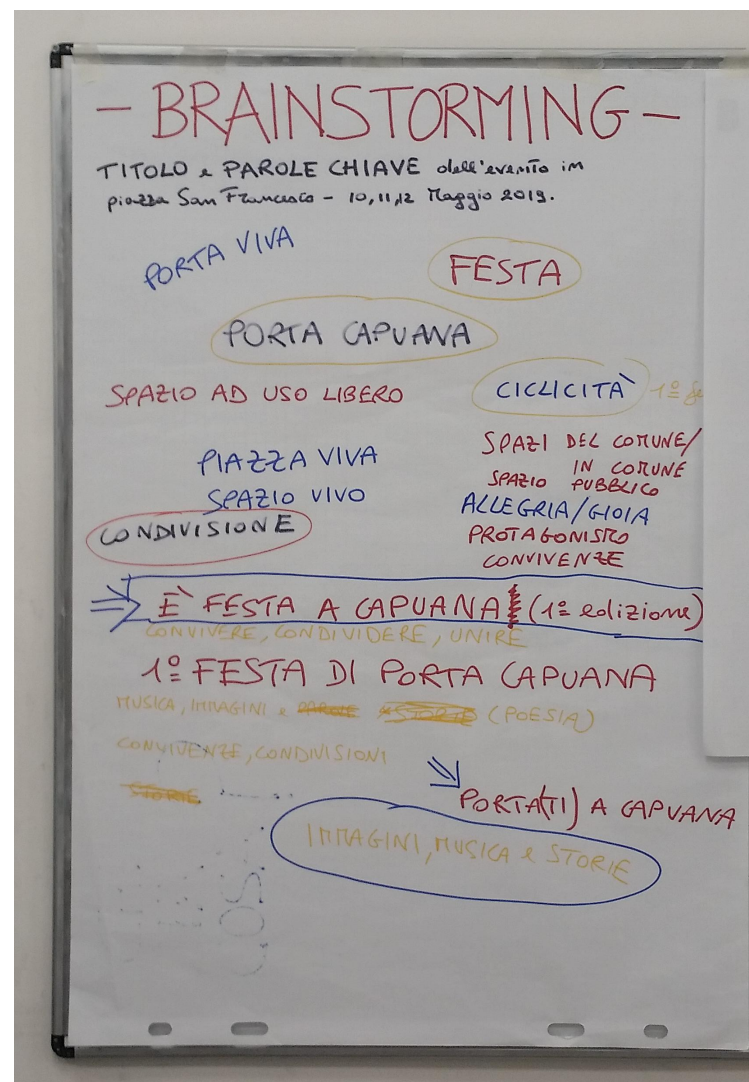 - BRAINSTORMING -
TITOLO e PAROLE CHIAVE dell'evento in
piazza San Francesco - 10,11,12 Maggio 2019.
PORTA VIVA
FESTA
PORTA CAPUANA
SPAZIO AD USO LIBERO
CICLICITÀ 1º
PIAZZA VIVA
SPAZIO VIVO
CONDIVISIONE
SPAZI DEL COMUNE/
IN COMUNE
SPAZIO PUBBLICO
ALLEGRIA/GIOIA
PROTAGONISMO
CONVIVENZE
È FESTA A CAPUANA! (1ª edizione)
CONVIVERE, CONDIVIDERE, UNIRE
1º FESTA DI PORTA CAPUANA
MUSICA, IMMAGINI e PAROLE STORIE (POESIA)
CONVIVENZE, CONDIVISIONI
STORIE
PORTA(TI) A CAPUANA
IMMAGINI, MUSICA e STORIE